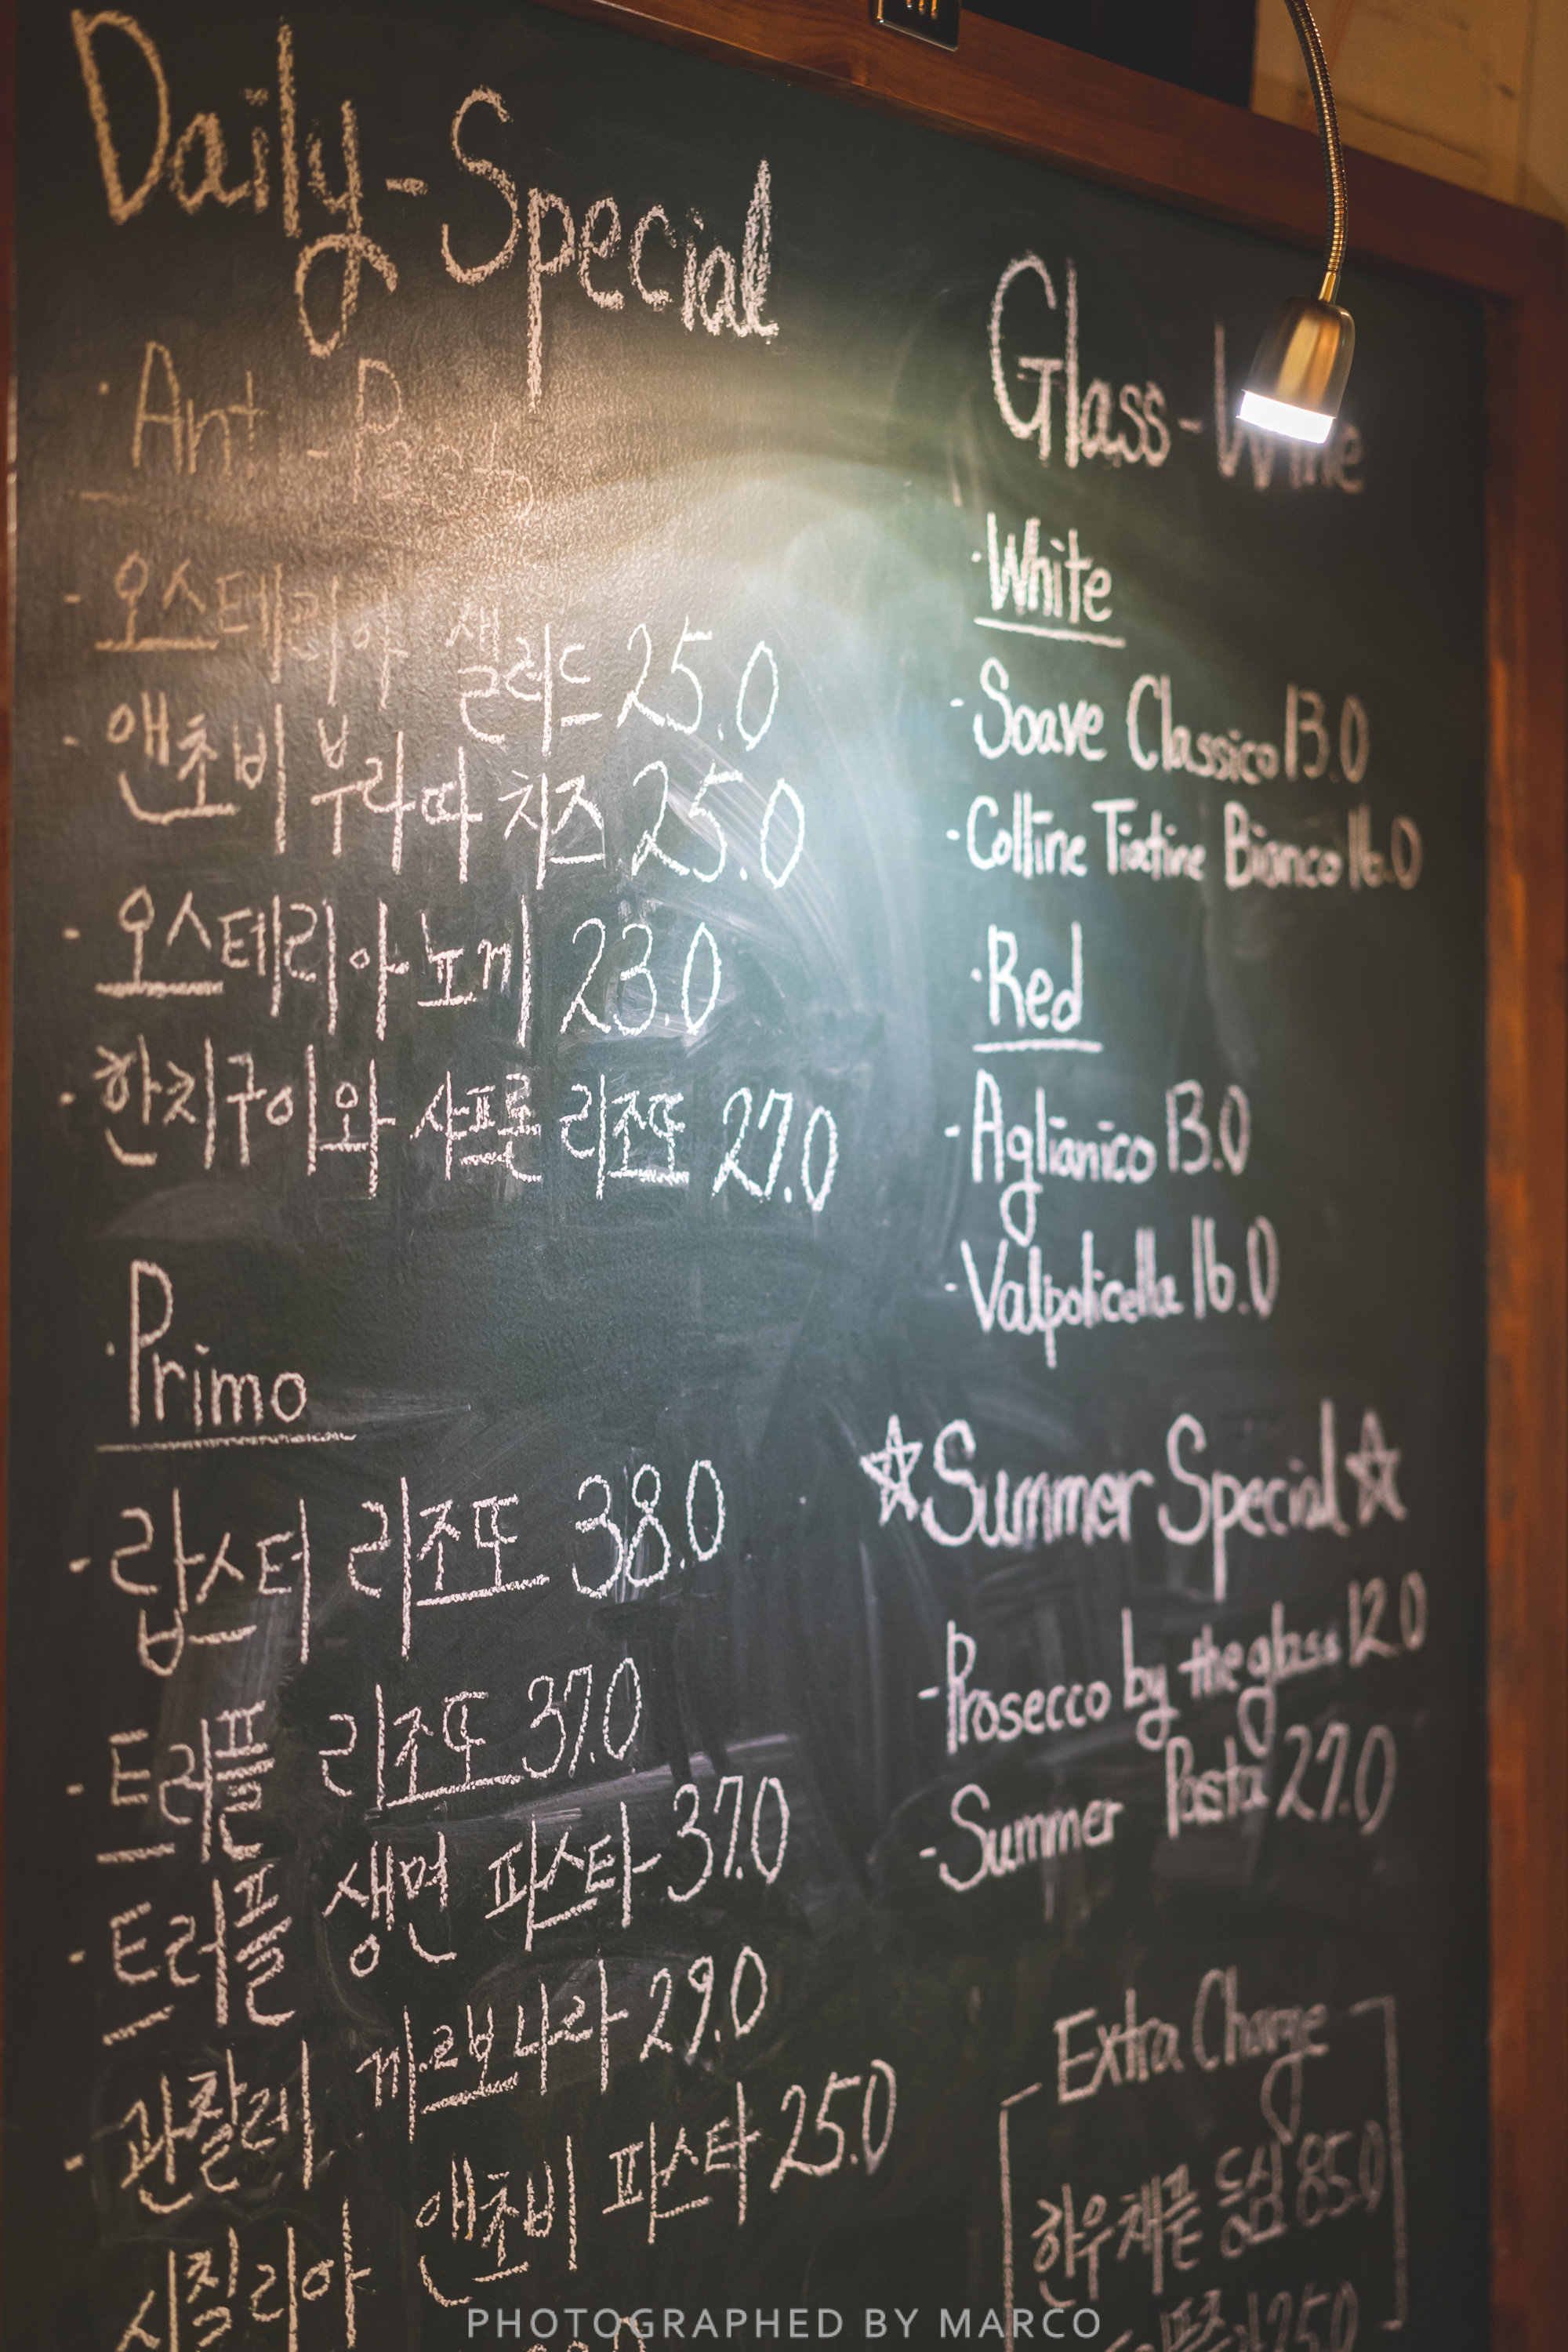 Daily-Special
· Ant
- 오스테리아 샐러드 25.0
- 앤초비 부라따 치즈 25.0
- 오스테리아 뇨끼 23.0
- 한치구이와 샤프론 리조또 27.0
· Primo
- 랍스터 리조또 38.0
- 트러플 리조또 37.0
- 트러플 생면 파스타 37.0
- 관찰레 까르보나라 29.0
시칠리아 앤초비 파스타 25.0
Glass-Wine
· White
- Soave Classico 13.0
- Colline Bianco 16.0
· Red
- Aglianico 13.0
- Valpolicella 16.0
☆Summer Special☆
- Prosecco by the glass 12.0
- Summer Pasta 27.0
Extra Charge
한우채끝 등심 85.0
PHOTOGRAPHED BY MARCO